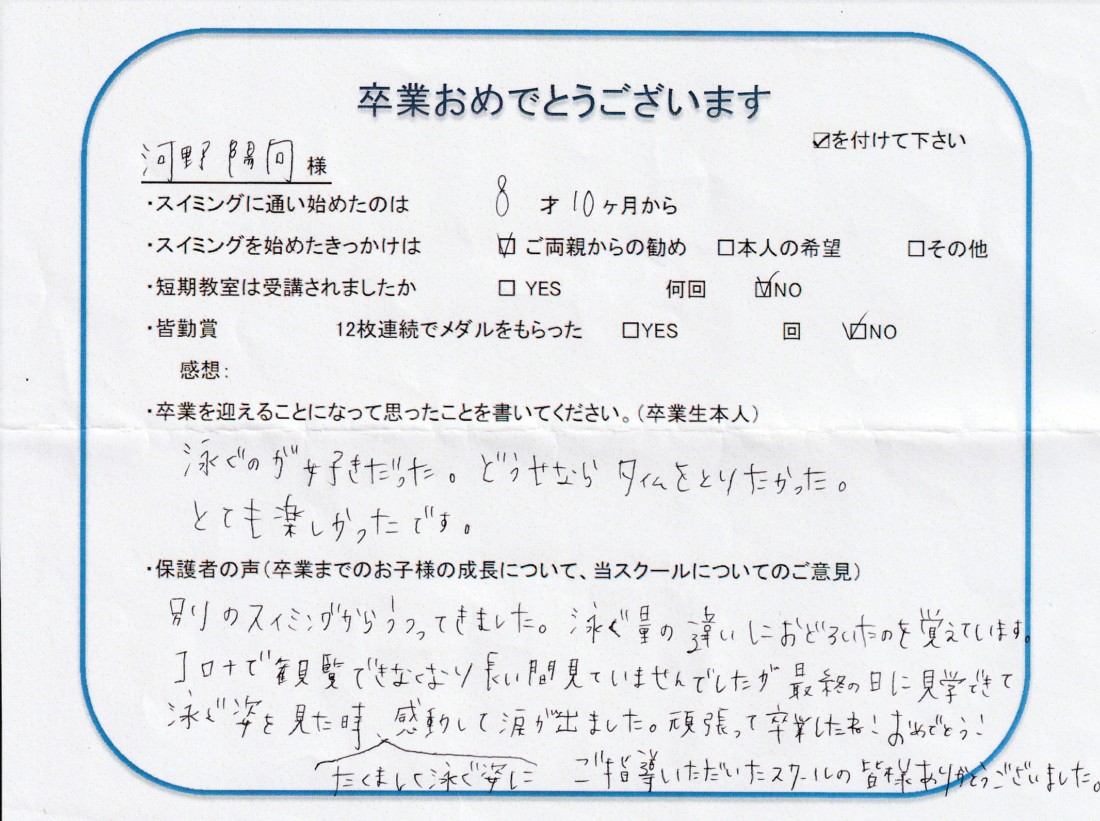 卒業おめでとうございます
☑を付けて下さい
河野 陽向 様
・スイミングに通い始めたのは 8 才 10 ヶ月から
・スイミングを始めたきっかけは ☑ ご両親からの勧め □本人の希望 □その他
・短期教室は受講されましたか □ YES 何回 ☑NO
・皆勤賞 12枚連続でメダルをもらった □YES 回 ☑NO
感想：
・卒業を迎えることになって思ったことを書いてください。（卒業生本人）
泳ぐのが好きだった。どうせなら タイムをとりたかった。
とても楽しかったです。
・保護者の声（卒業までのお子様の成長について、当スクールについてのご意見）
別のスイミングからうつってきました。泳ぐ量の違いにおどろいたのを覚えています。
コロナで観覧できなくなり長い間見ていませんでしたが最終の日に見学できて
泳ぐ姿を見た時、感動して涙が出ました。頑張って卒業したね！おめでとう！
たくましく泳ぐ姿に ご指導いただいたスクールの皆様ありがとうございました。